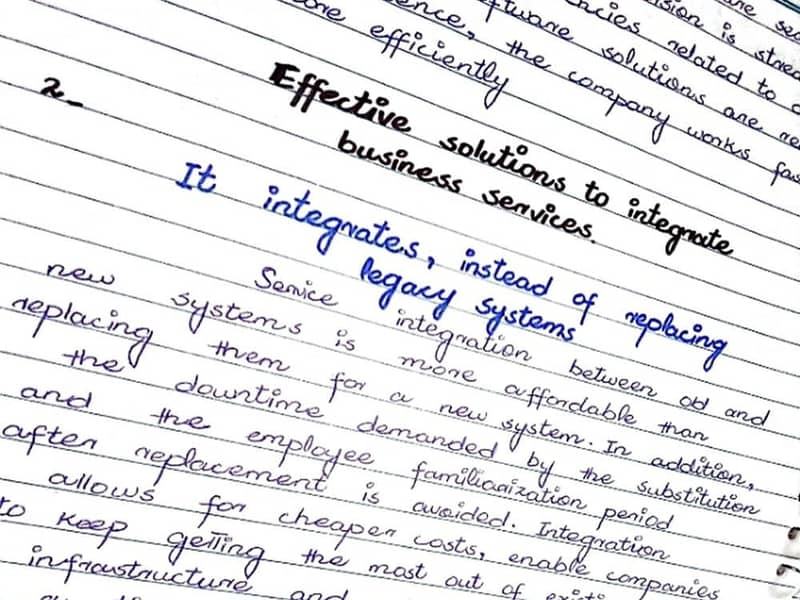 are sec
ision is stored
ncies related to c
ftware solutions are re
ence, the company works fas
efficiently
2_
Effective solutions to integrate
business services.
It integrates, instead of replacing
legacy systems
Service integration between old and
new systems is more affordable than
replacing them for a new system. In addition,
the downtime demanded by the substitution
and the employee familiarization period
after replacement is avoided. Integration
allows for cheaper costs, enable companies
to keep getting the most out of existi
infraustructure and